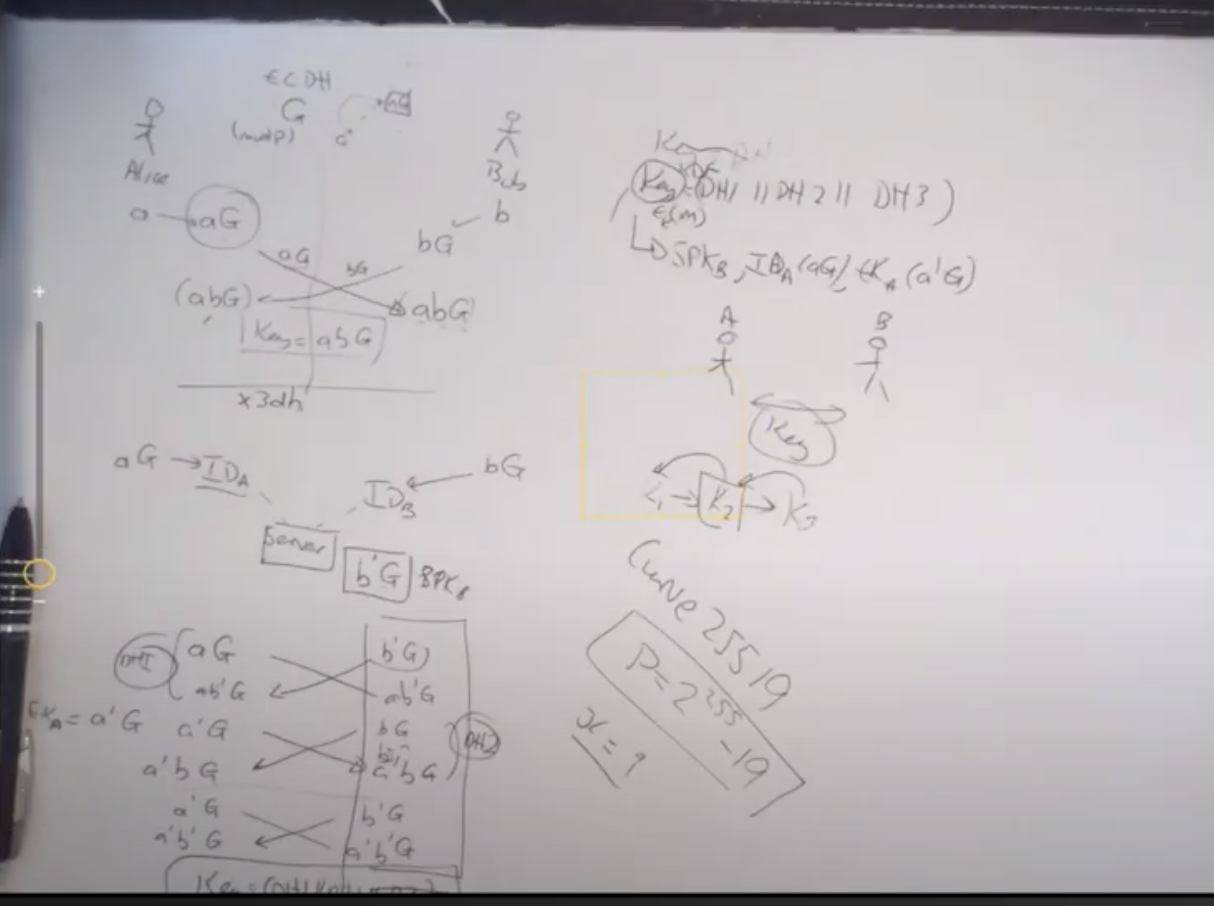 ECDH
G
(mod p)
a
aG
Alice
Bob
a aG
b
bG
aG bG
(abG)
abG
Key = abG
x3dh
aG → IDA
IDB ← bG
Server
b'G SPKB
DH1
aG b'G)
ab'G ab'G
EKA = a'G a'G bG
DH2
a'bG a'bG
a'G b'G
a'b'G a'b'G
KDF
Key = (DH1 || DH2 || DH3)
Ek(m)
SPKB, IDA (aG), EKA (a'G)
A B
Key
K1 → K2 → K3
Curve 25519
P = 2^255 - 19
x = 9